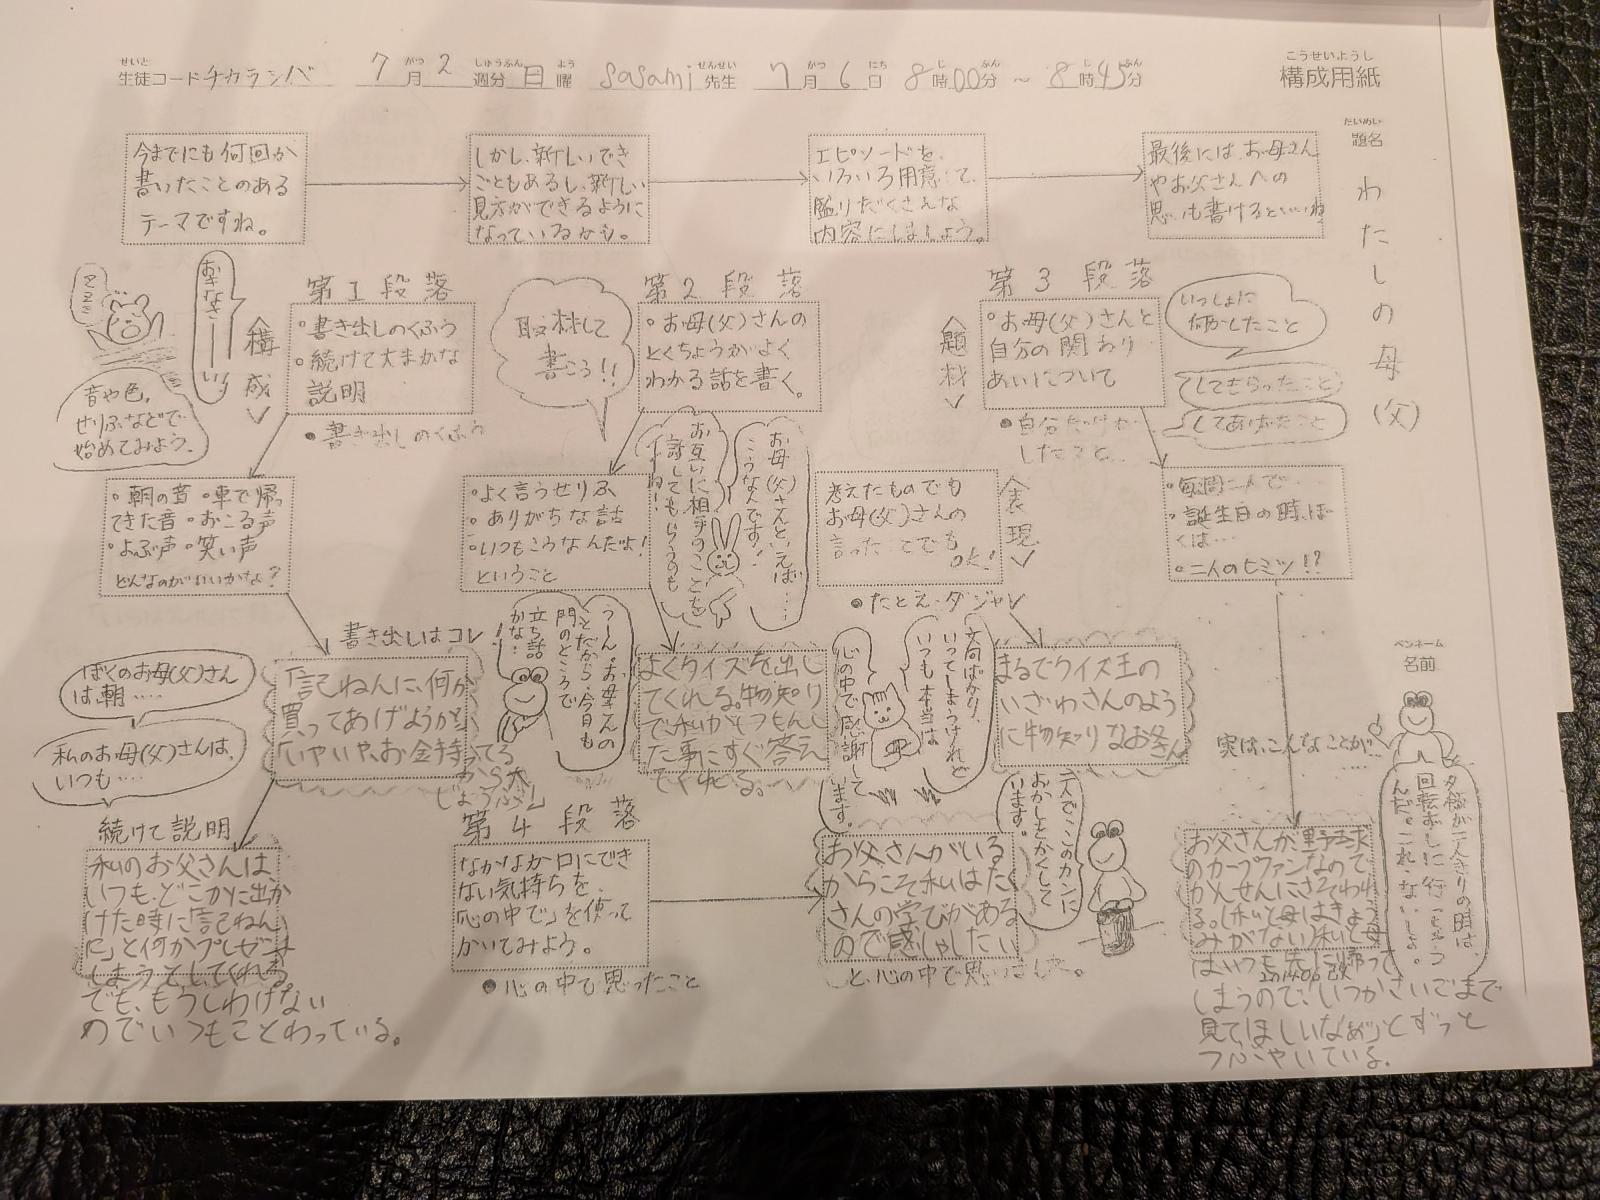 せいと がつ しゅうぶん よう せんせい がつ にち じ ふん じ ふん
生徒コード チカラシバ 7月2週分 日曜 sasami先生 7月6日 8時00分 〜 8時45分
こうせいようし
構成用紙
だいめい
題名
わたしの母(父)
今までにも何回か
書いたことのある
テーマですね。
しかし、新しいでき
ごともあるし、新しい
見方ができるように
なっているかも。
エピソードを、
いろいろ用意して、
盛りだくさんな
内容にしましょう。
最後には、お母さん
やお父さんへの
思いも書けるといいね
〈構成〉
第1段落
・書き出しのくふう
・続けて大まかな
説明
●書き出しのくふう
おきなさーーい!
音や色、
せりふなどで
始めてみよう。
・朝の音・車で帰っ
てきた音・おこる声
・よぶ声・笑い声
どんなのがいいかな?
書き出しはコレ!
「記ねんに、何か
買ってあげようか」
「いやいや、お金持ってる
から大
じょうぶ」
ぼくのお母(父)さん
は朝‥‥
私のお母(父)さんは、
いつも‥‥
続けて説明
私のお父さんは
いつも、どこかに出か
けた時に「記ねん
に」と何かプレゼント
しようとしてくれる
でも、もうしわけない
のでいつもことわっている。
取材して
書こう!!
第2段落
・お母(父)さんの
とくちょうがよく
わかる話を書く。
お母(父)さんといえば‥‥
こうなんです!
お互いに相手のことを
話してもらうのも
イイね!
・よく言うせりふ
・ありがちな話
・いつもこうなんだよ!
ということ
うーん。お母さんの
ことだから、今日も
門のところで
立ち話
かな!
よくクイズを出し
てくれる。物知り
で私がしつもんし
た事にすぐ答え
てくれる。
〈題材〉
第3段落
・お母(父)さんと
自分の関わり
あいについて
いっしょに
何かしたこと
してもらったこと
してあげたこと
●自分だけが
したこと
〈表現〉
考えたものでも
お母(父)さんの
言ったことでも
OK!
●たとえ・ダジャレ
まるでクイズ王の
いざわさんのよう
に物知りなお父さん
・毎週二人で‥‥
・誕生日の時、ぼ
くは‥‥
・二人のヒミツ!!?
実は、こんなことが‥‥
夕飯が二人きりの時は、
回転ずしに行っちゃう
んだ。これ、ないしょ。
お父さんが野球
のカープファンなので
かんせんにさそわれ
る。(私と母はきょう
みがない)私と母
はいつも先に帰って
しまうので、いつかさいごまで
見てほしいなぁ」とずっと
つぶやいている。
第4段落
なかなか口にでき
ない気持ちを、
「心の中で」を使って
かいてみよう。
●心の中で思ったこと
文句ばかり、
いってしまうけれど
いつも本当は
心の中で感謝して
います。
お父さんがいる
からこそ私はたく
さんの学びがある
ので感しゃしたい
と、心の中で思いました。
二人でこのカンに
おかしをかくして
います。
ペンネーム
名前